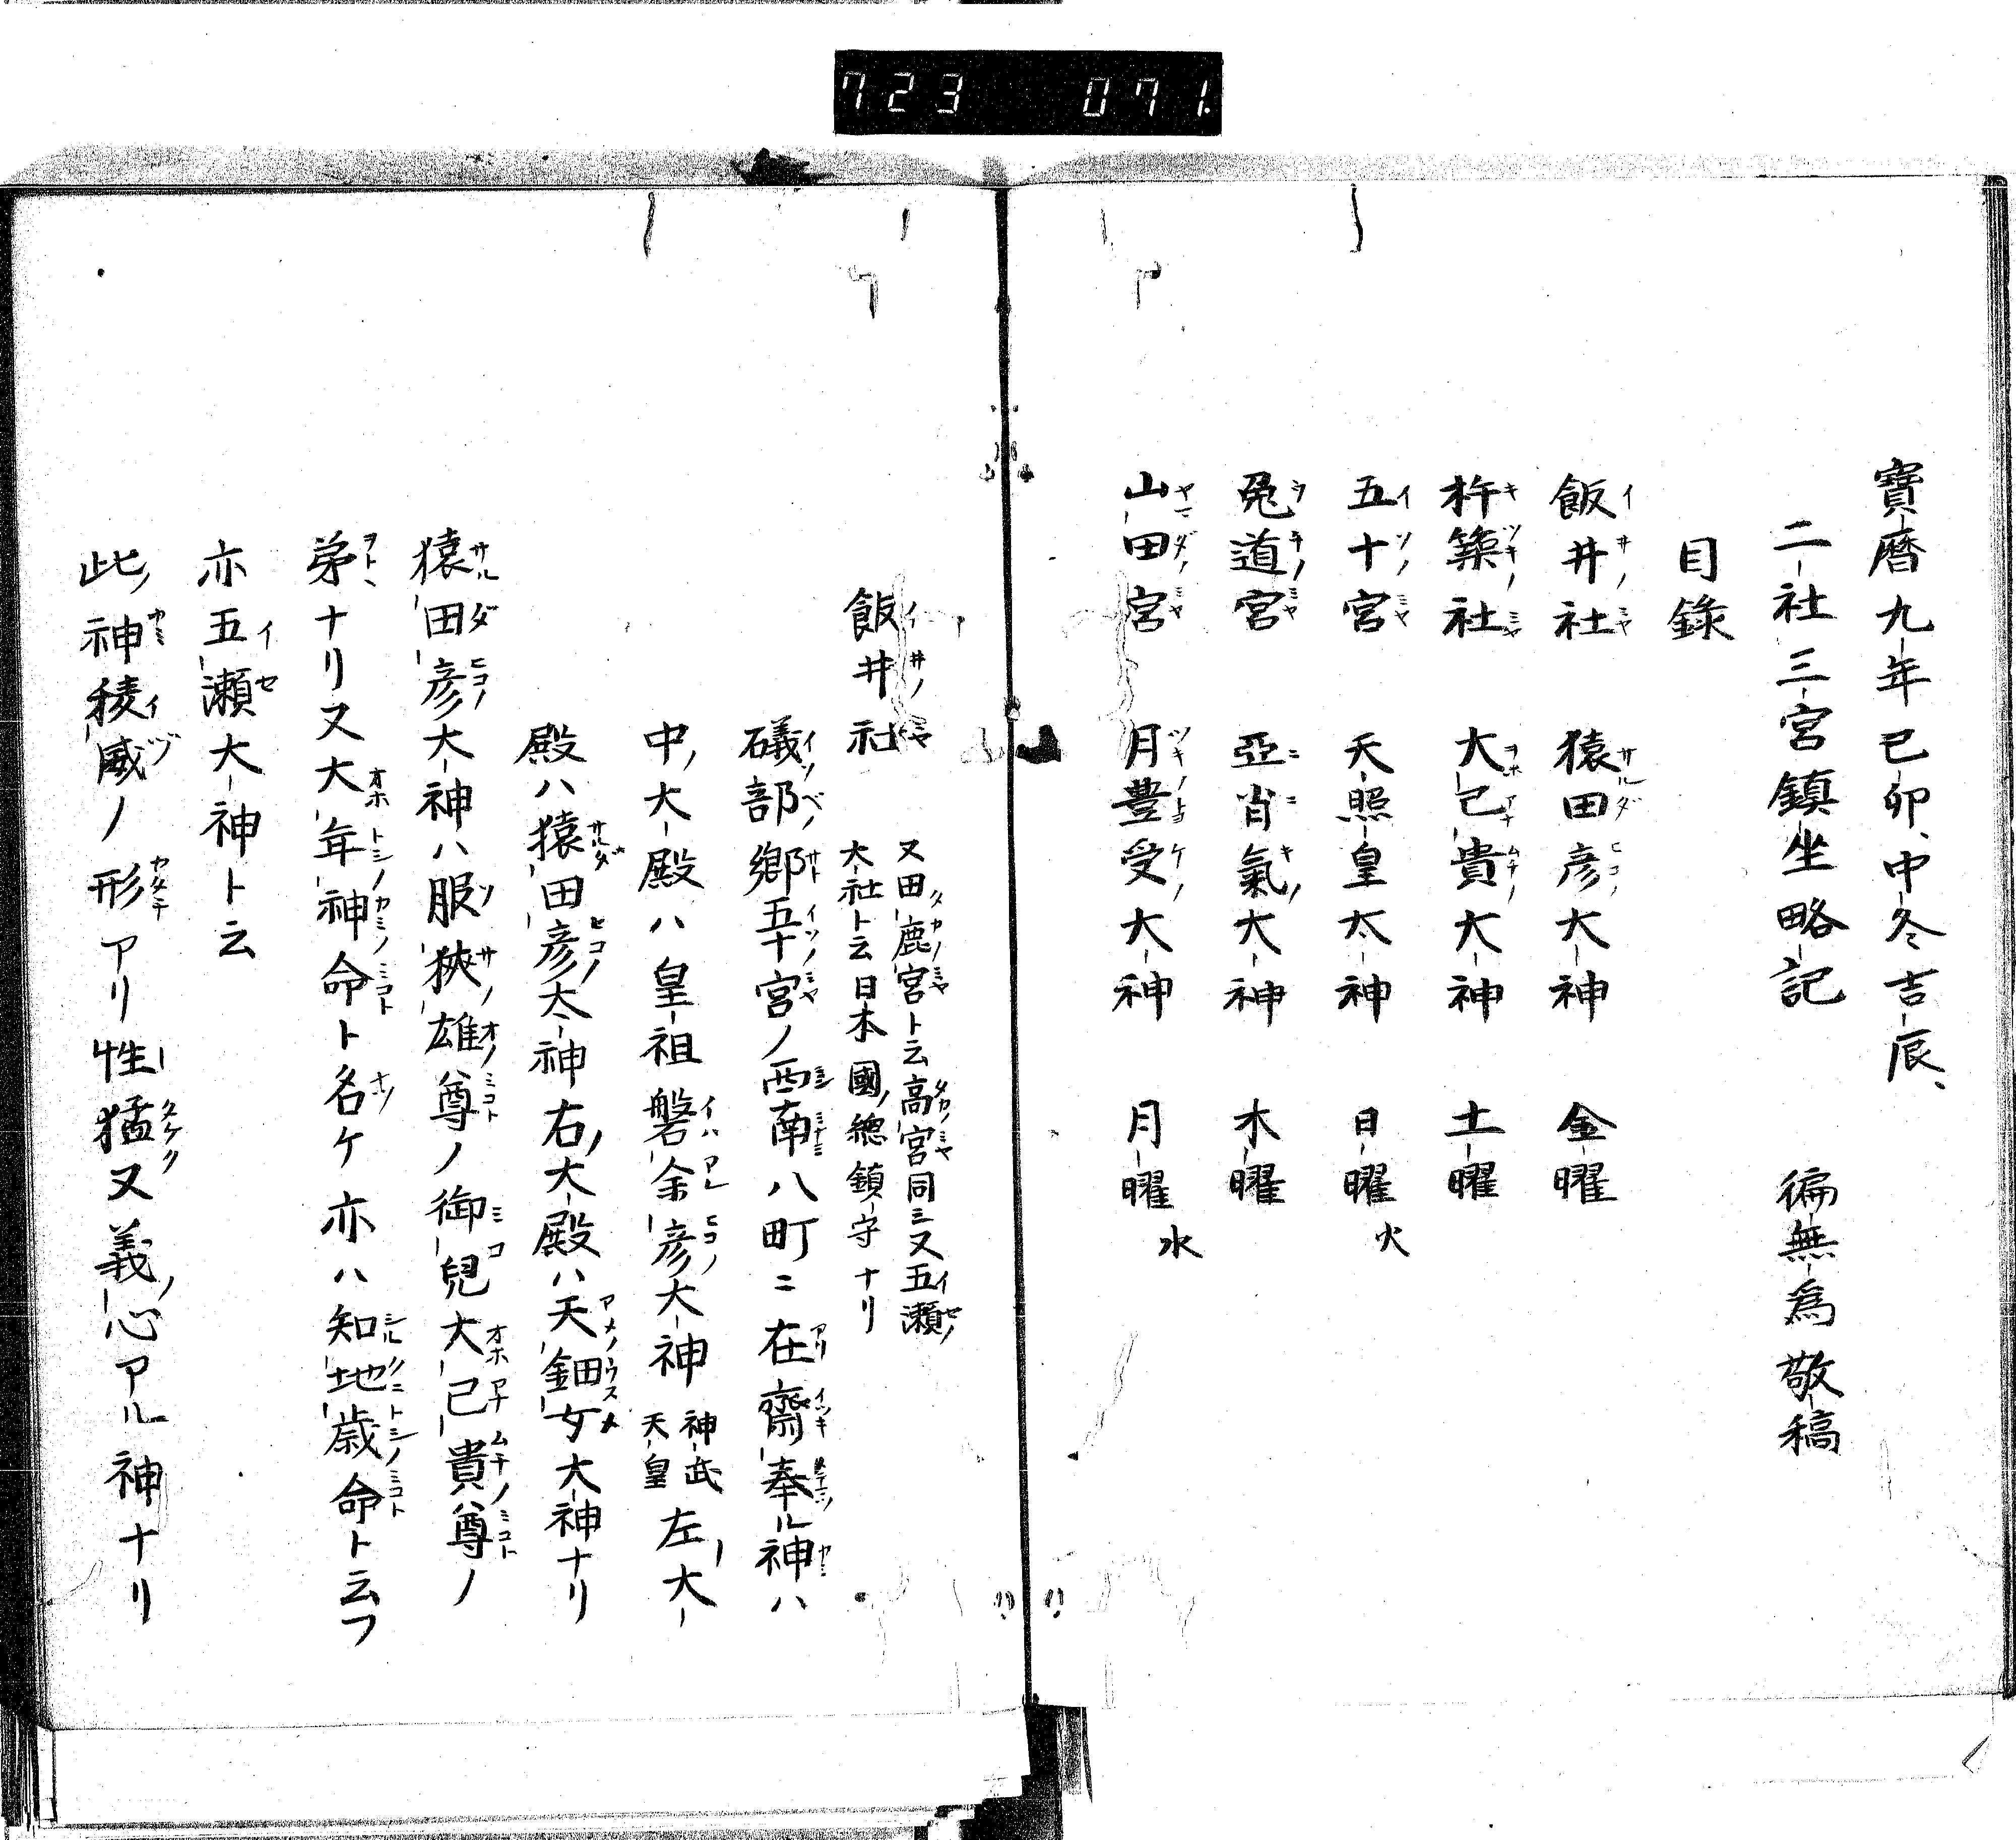 723 071.
寶暦九年己卯、中冬吉辰、
二社三宮鎮坐略記 徧無爲敬稿
目錄
飯井社 猿田彦大神 金曜
杵築社 大己貴大神 土曜
五十宮 天照皇太神 日曜 火
兎道宮 亞肖氣大神 木曜
山田宮 月豊受大神 月曜 水
飯井社 又田鹿宮ト云高宮同三又五瀬
大社ト云日本國ノ總鎮守ナリ
礒部ノ郷五十宮ノ西南八町ニ在齋奉ル神ハ
中ノ大殿ハ皇祖磐余彦大神 神武天皇 左ノ大
殿ハ猿田彦太神右ノ大殿ハ天鈿女大神ナリ
猿田彦大神ハ服狹雄尊ノ御兒大己貴尊ノ
弟ナリ又大年神命ト名ケ亦ハ知地歳命ト云フ
亦五瀬大神ト云
此ノ神稜威ノ形アリ性猛又義ノ心アル神ナリ